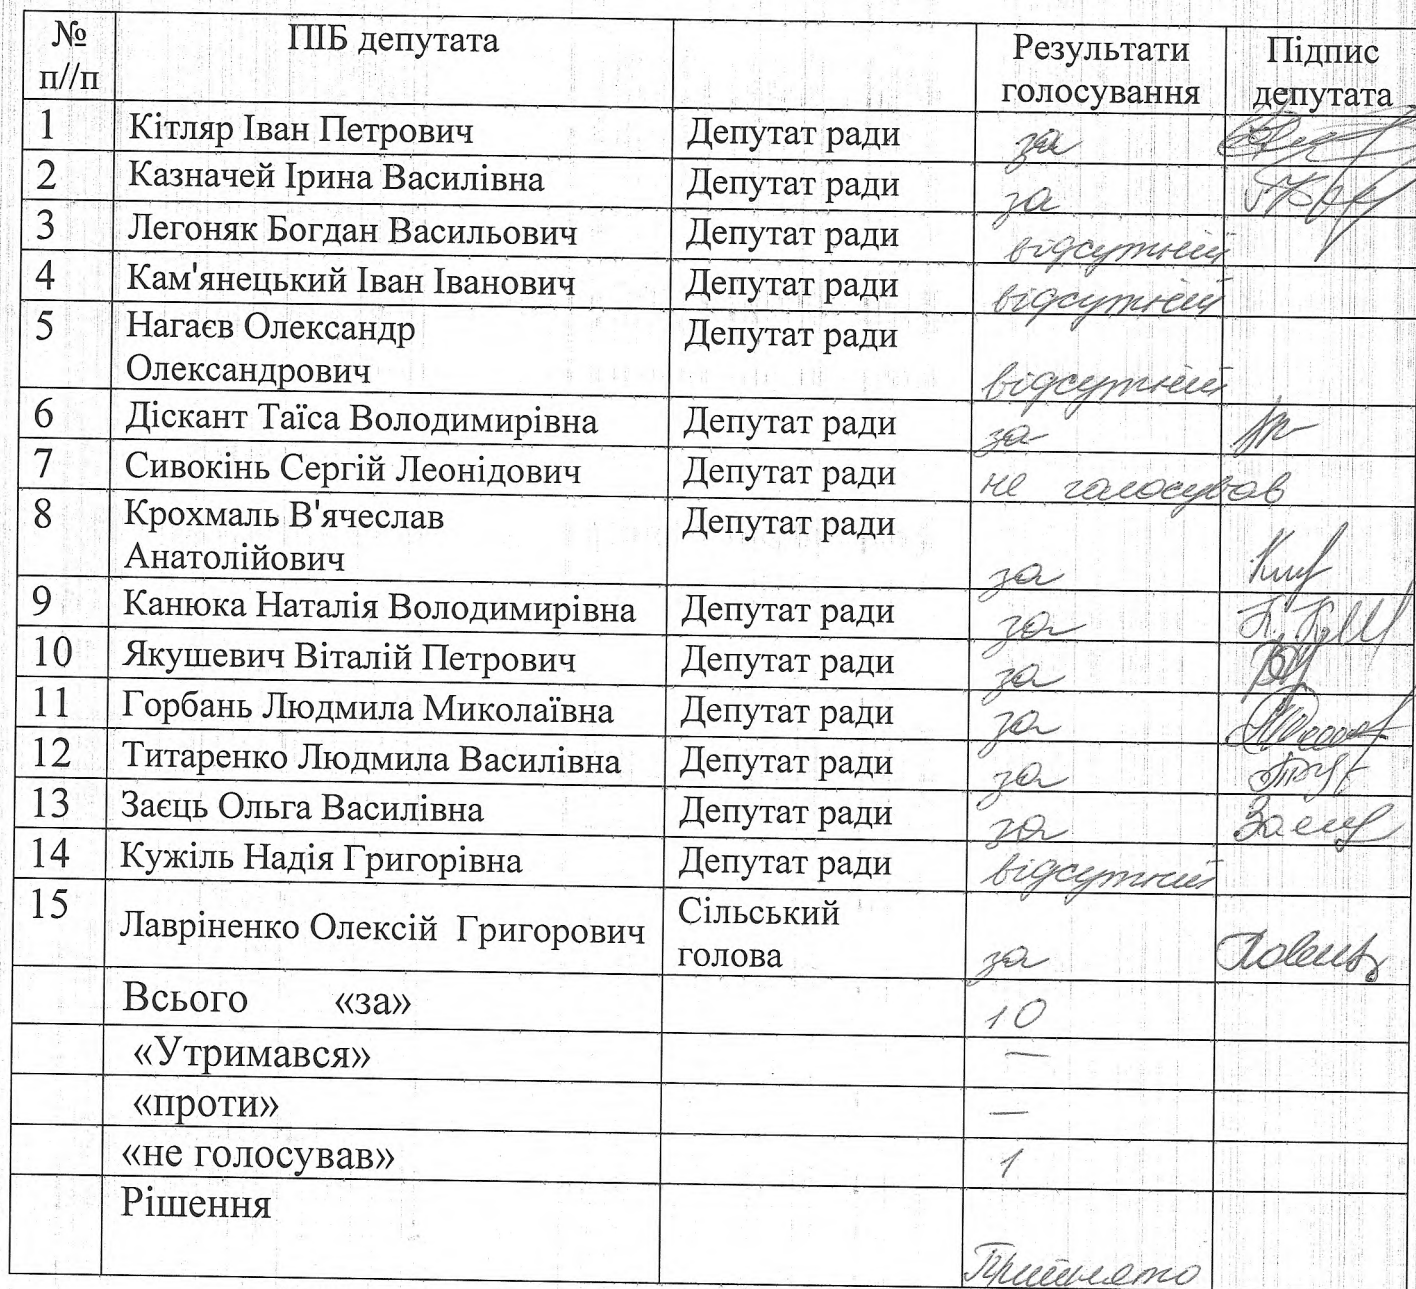 № п//п ПІБ депутата Результати голосування Підпис депутата
1 Кітляр Іван Петрович Депутат ради за
2 Казначей Ірина Василівна Депутат ради за
3 Легоняк Богдан Васильович Депутат ради відсутній
4 Кам'янецький Іван Іванович Депутат ради відсутній
5 Нагаєв Олександр Депутат ради
Олександрович відсутній
6 Діскант Таїса Володимирівна Депутат ради за
7 Сивокінь Сергій Леонідович Депутат ради не голосував
8 Крохмаль В'ячеслав Депутат ради
Анатолійович за
9 Канюка Наталія Володимирівна Депутат ради за
10 Якушевич Віталій Петрович Депутат ради за
11 Горбань Людмила Миколаївна Депутат ради за
12 Титаренко Людмила Василівна Депутат ради за
13 Заєць Ольга Василівна Депутат ради за
14 Кужіль Надія Григорівна Депутат ради відсутній
15 Лавріненко Олексій Григорович Сільський голова за
Всього «за» 10
«Утримався» —
«проти» —
«не голосував» 1
Рішення
Прийнято